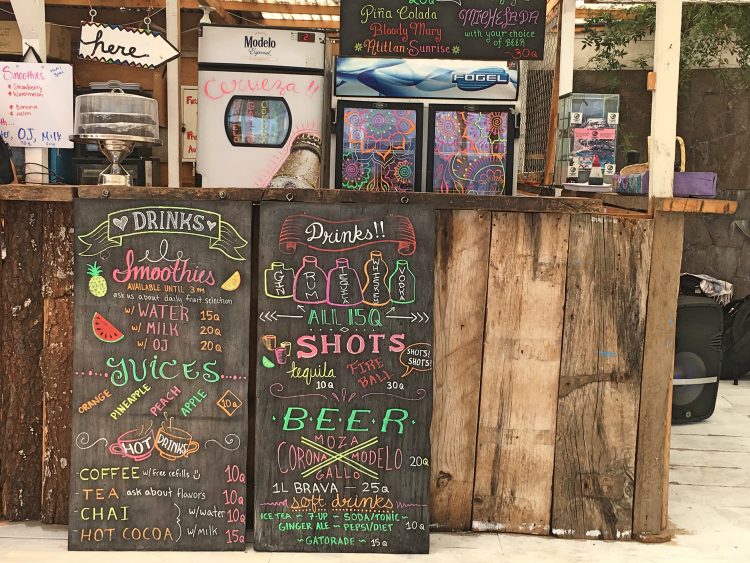 here
Smoothies
Strawberry
Watermelon
Banana
Melon
OJ, Milk
Modelo
Especial
Cerveza!!
Piña Colada
Bloody Mary
Atitlan Sunrise
MICHELADA
with your choice
of BEER
-30Q
FOGEL
DRINKS
Smoothies
AVAILABLE UNTIL 3 PM
ask us about daily fruit selection
w/ WATER 15Q
w/ MILK 20Q
w/ OJ 20Q
JUICES
ORANGE PINEAPPLE PEACH APPLE 10Q
HOT DRINKS
COFFEE w/ free refills 10Q
TEA ask about flavors 10Q
CHAI w/water 10Q
HOT COCOA w/milk 15Q
Drinks!!
GIN RUM TEQUILA WHISKEY VODKA
ALL 15Q
SHOTS
SHOTS!
SHOTS!
tequila 10Q
FIRE BALL 30Q
BEER
MOZA
CORONA MODELO 20Q
GALLO
1L BRAVA - 25Q
soft drinks
ICE TEA ~ 7-UP ~ SODA/TONIC ~
GINGER ALE ~ PEPSI/DIET 10Q
~ GATORADE ~ 15Q